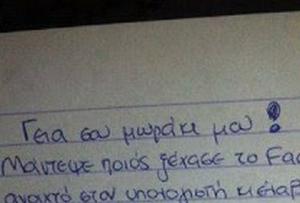 Γεια σου μωράκι μου!
Μάντεψε ποιός ξέχασε το Fac
ανοιχτό στον υπολογιστή κ έταρ